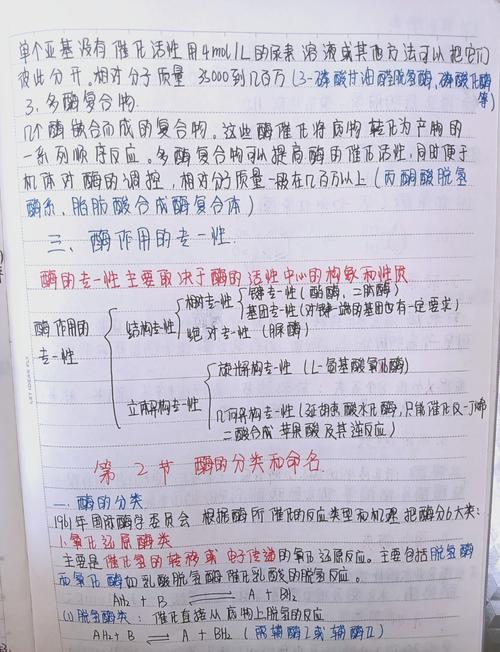 单个亚基没有催化活性用4mol/L的尿素溶液或其他方法可以把它们
彼此分开。相对分子质量35000到几百万(3-磷酸甘油醛脱氢酶,磷酸化酶
等)
3.多酶复合物
几个酶嵌合而成的复合物。这些酶催化将底物转化为产物的
一系列顺序反应。多酶复合物可以提高酶的催化活性,同时便于
机体对酶的调控,相对分子质量一般在几百万以上(丙酮酸脱氢
酶系、脂肪酸合成酶复合体)
三、酶作用的专一性.
酶的专一性主要取决于酶的活性中心的构象和性质
酶作用的专一性
结构专一性
相对专一性
键专一性(酯酶、二肽酶)
基团专一性(对键一端的基团也有一定要求)
绝对专一性(脲酶)
立体异构专一性
旋光异构专一性(L-氨基酸氧化酶)
几何异构专一性(延胡索酸水化酶,只能催化反-丁烯
二酸合成苹果酸及其逆反应)
第2节 酶的分类和命名.
一.酶的分类
1961年国际酶学委员会根据酶所催化的反应类型和机理把酶分6大类:
1.氧化还原酶类
主要是催化氢的转移或电子传递的氧化还原反应。主要包括脱氢酶
和氧化酶如乳酸脱氢酶催化乳酸的脱氢反应。
AH₂ + B ⇌ A + BH₂
(1)脱氢酶类:催化直接从底物上脱氢的反应
AH₂ + B ⇌ A + BH₂ (需辅酶Ⅰ或辅酶Ⅱ)